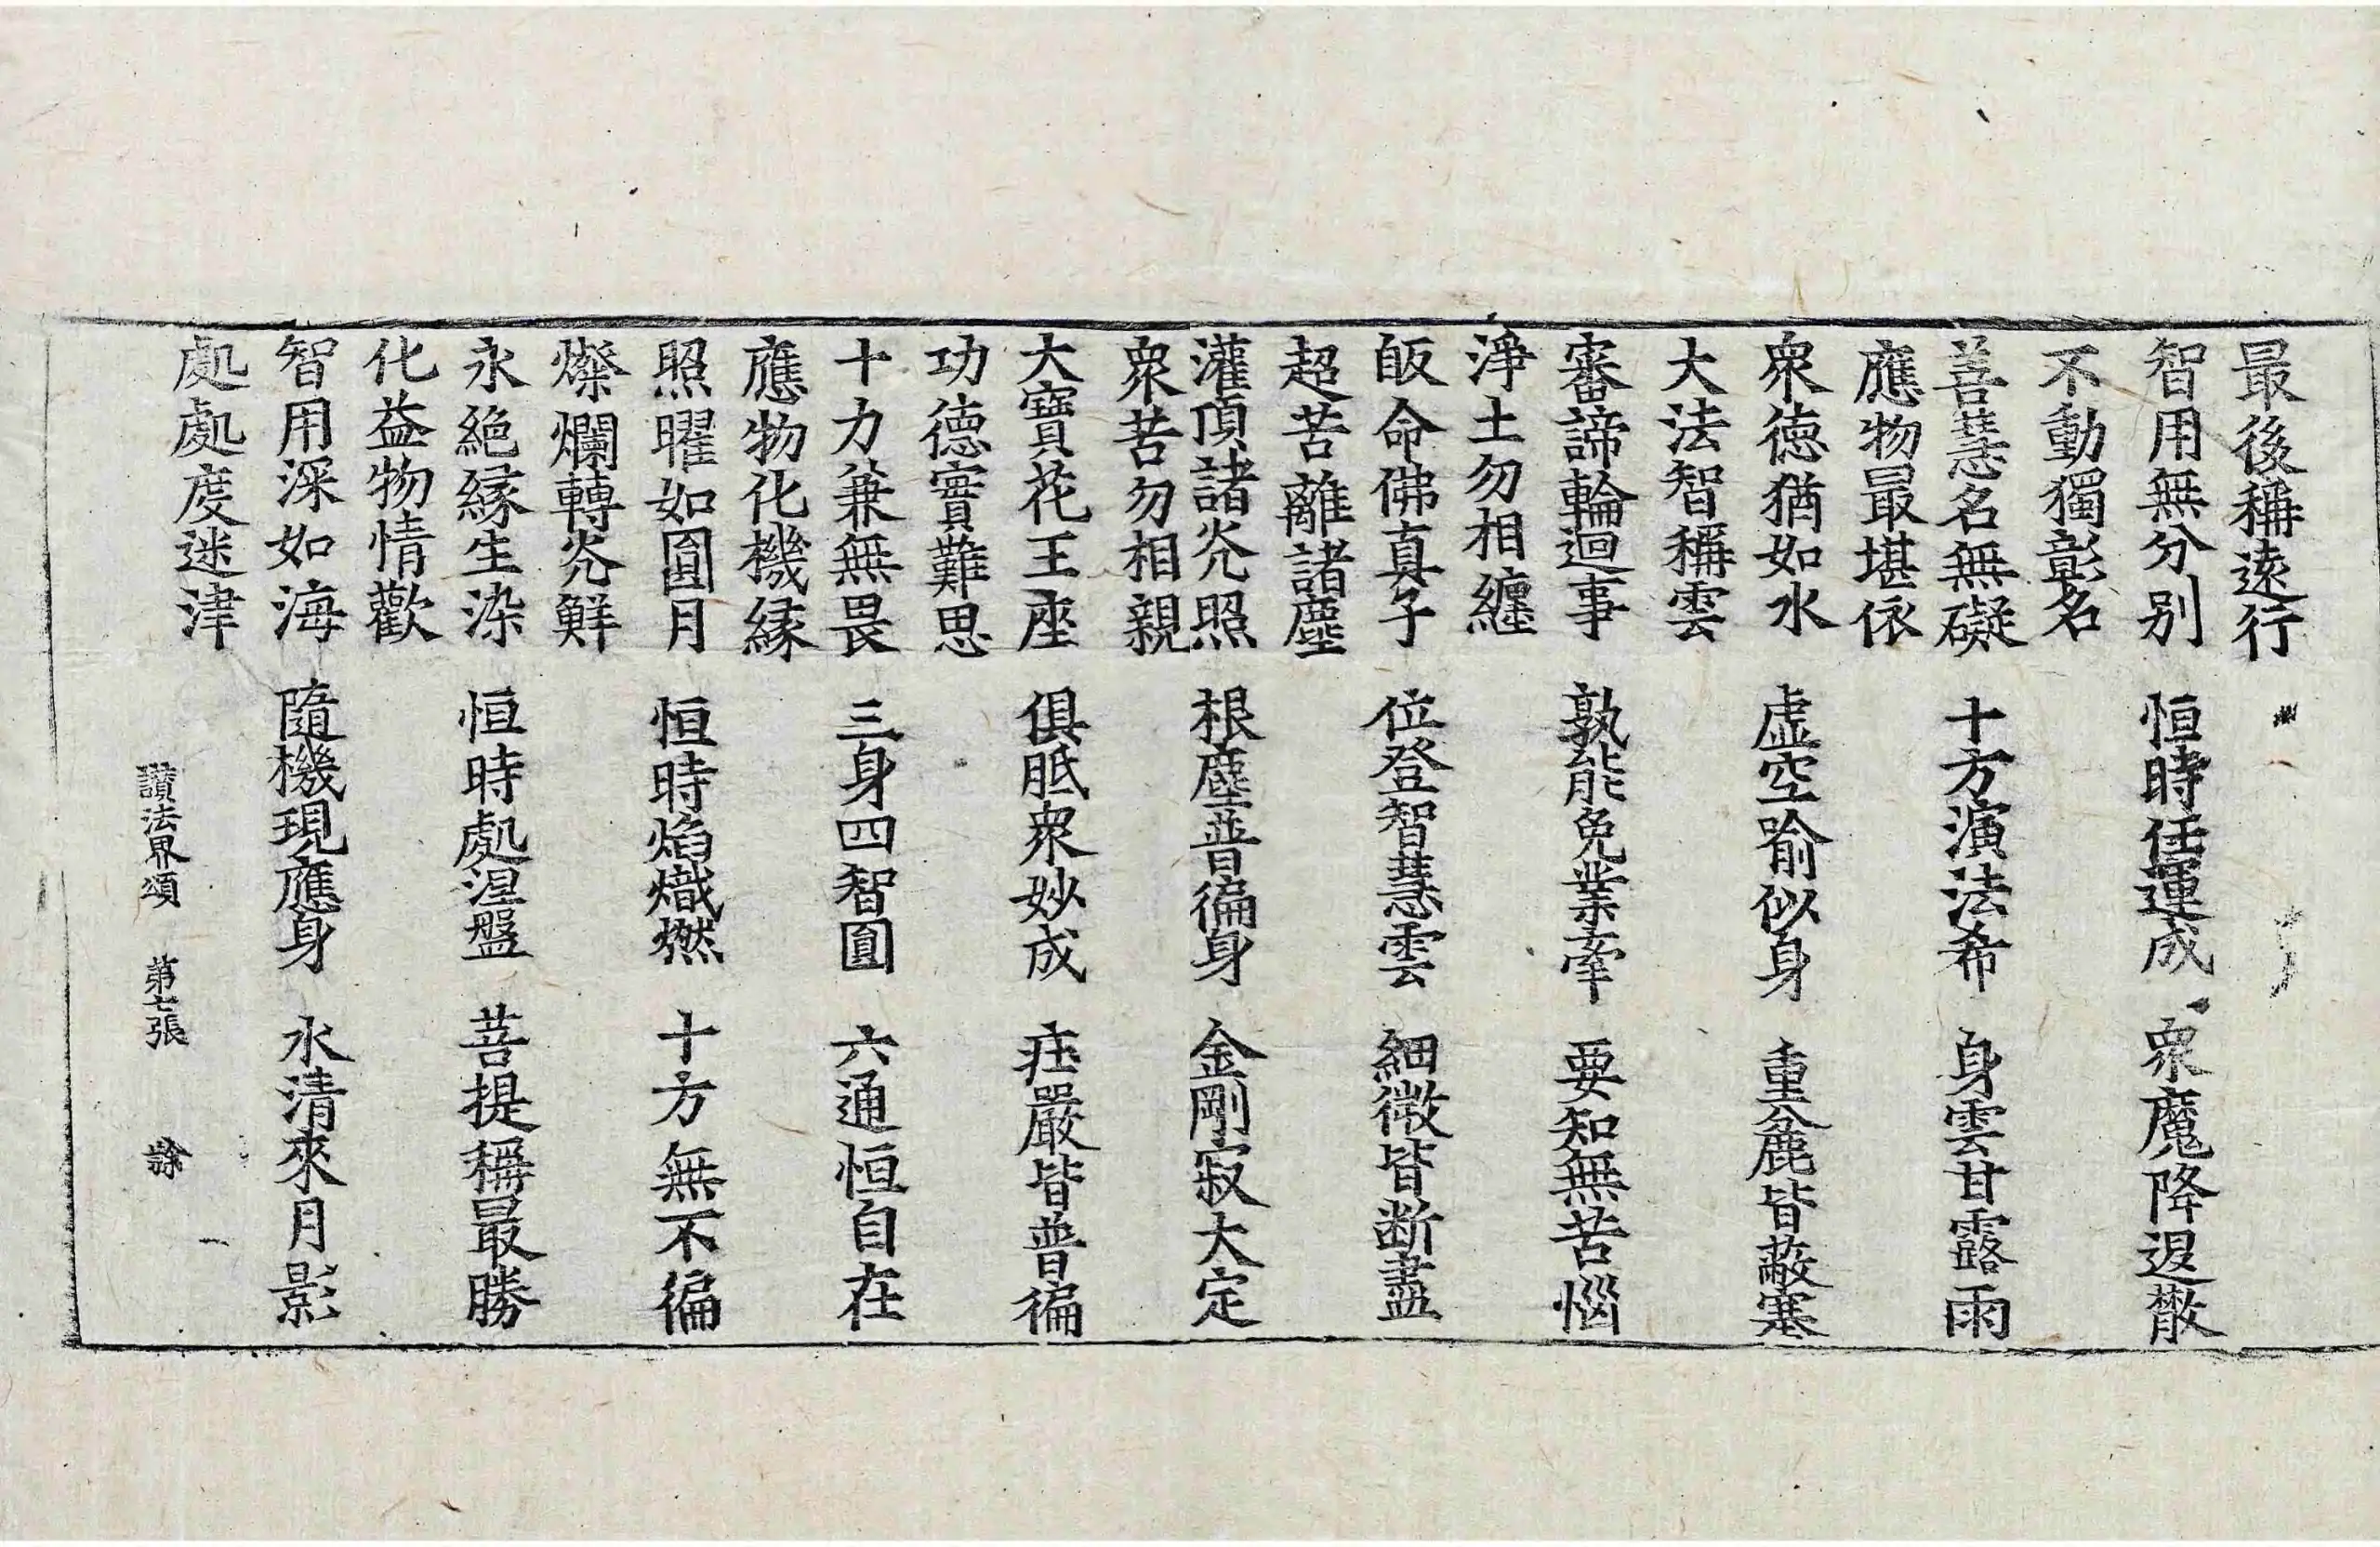 最後稱遠行
智用無分别　恒時任運成　衆魔降退散
不動獨彰名
善慧名無礙　十方演法希　身雲甘露雨
應物最堪依
衆徳猶如水　虚空喻似身　重麁皆蔽塞
大法智稱雲
審諦輪迴事　孰能免業牽　要知無苦惱
淨土勿相纏
皈命佛真子　位登智慧雲　細微皆断盡
超苦離諸塵
灌頂諸光照　根塵普徧身　金剛寂大定
衆苦勿相親
大寶花王座　俱胝衆妙成　莊嚴皆普徧
功德實難思
十力兼無畏　三身四智圓　六通恒自在
應物化機緣
照曜如圓月　恒時焰熾燃　十方無不徧
燦爛轉光鮮
永絶緣生染　恒時處涅盤　菩提稱最勝
化益物情歡
智用深如海　隨機現應身　水清來月影
處處度迷津
讚法界頌　第七張